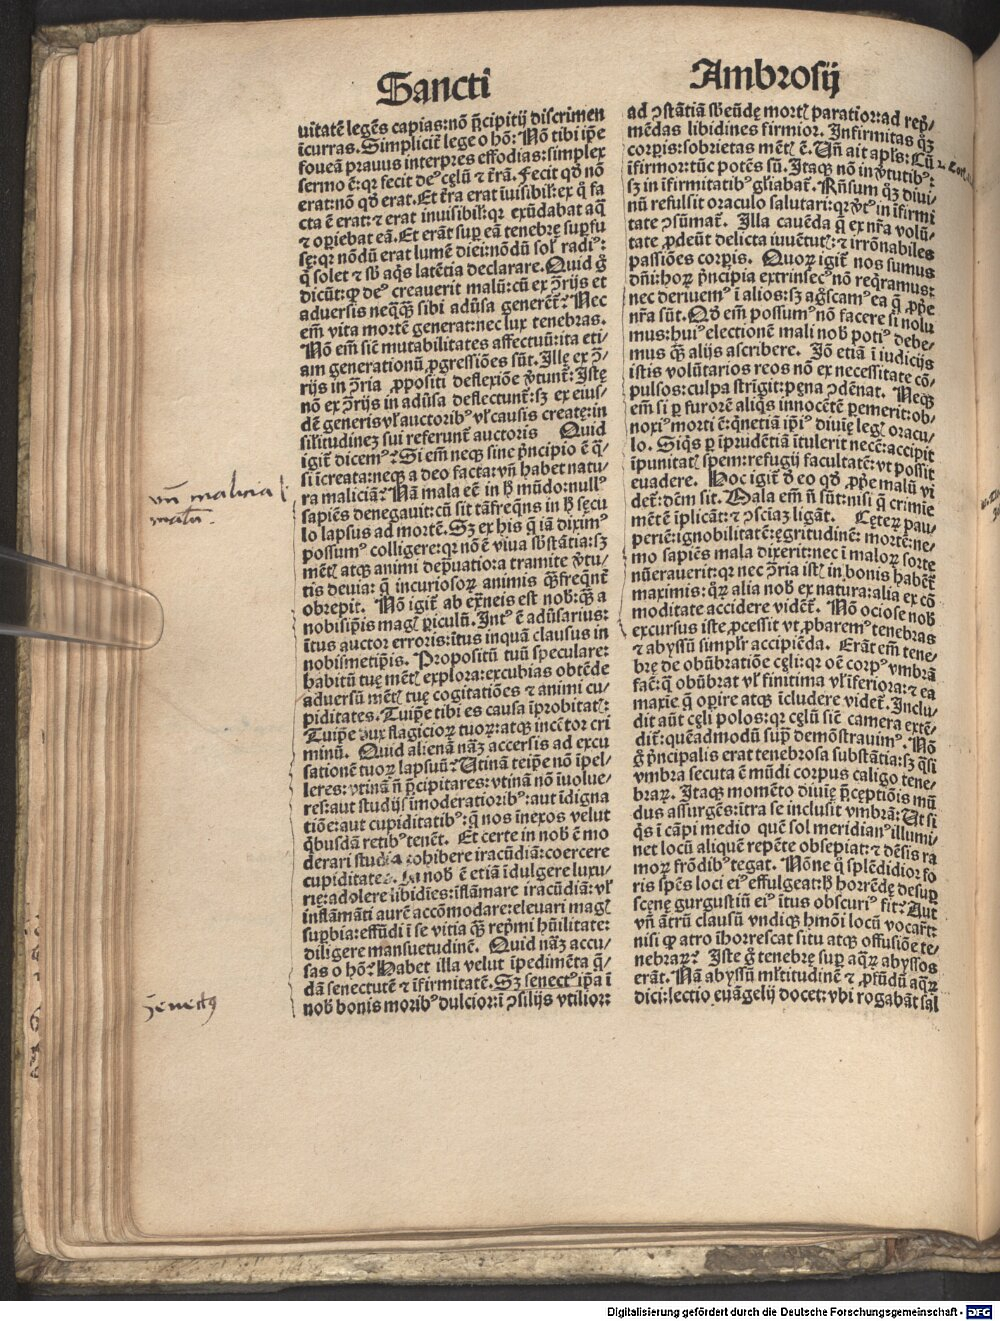 Sancti
Ambrosij
uitatē legēs capias: nō p̄cipitij discrimen
īcurras. Simplicit̄ lege o hō: Nō tibi ip̄e
foueā prauus interpres effodias: simplex
sermo ē: qꝛ fecit deꝰ cęlū ⁊ t̄rā. Fecit qd̄ nō
erat: nō qd̄ erat. Et t̄ra erat īuisibil̓: ex q̄ fa
cta ē erat: ⁊ erat inuisibil̓: qꝛ exūdabat aq̄
⁊ oꝑiebat eā. Et erāt suꝑ eā tenebrę suꝑfu
sę: qꝛ nōdū erat lumē diei: nōdū sol̓ radiꝰ:
q̄ solet ⁊ sb̄ aq̄s latētia declarare. Quid g̊
dicūt: ꝙ deꝰ creauerit malū: cū ex ꝯ̄rijs et
aduersis neq̄q̄ꝫ sibi adūsa generēt̄? Nec
em̄ vita mortē generat: nec lux tenebras.
Nō em̄ sic̄ mutabilitates affectuū: ita eti-
am generationū ꝓgressiōes sūt. Ille ex ꝯ̄-
rijs in ꝯ̄ria ꝓpositi deflexiōe v̄tunt̄: Istę
nō ex ꝯ̄rijs in adūsa deflectunt̄: sꝫ ex eius-
dē generis vl̓ auctoribꝰ vl̓ causis creatę: in
sil̓itudinez sui referunt̄ auctoris Quid
igit̄ dicemꝰ? Si em̄ neqꝫ sine p̄ncipio ē q̄-
si īcreata: neqꝫ a deo facta: vn̄ habet natu-
ra maliciā? Nā mala eē in h̄ mūdo: nullꝰ
sapiēs denegauit: cū sit tāfreq̄ns in h̄ sęcu
lo lapsus ad mortē. Sꝫ ex his q̄ iā diximꝰ
possumꝰ colligere: qꝛ nō ē viua sb̄stātia: sꝫ
mēt̓ atqꝫ animi dep̄uatio: a tramite v̄tu-
tis deuia: q̄ incuriosoꝝ animis q̄ꝫfreq̄nt̄
obrepit. Nō igit̄ ab ext̄neis est nob̓: q̄ꝫ a
nobisip̄is mag̓ ꝑiculū. Intꝰ ē adūsarius:
ītus auctor erroris: ītus inquā clausus in
nobismetip̄is. Propositū tuū speculare:
habitū tuę mēt̓ explora: excubias obtēde
aduersū mēt̓ tuę cogitatiōes ⁊ animi cu-
piditates. Tuip̄e tibi es causa īprobitat̓:
Tuip̄e dux flagicioꝝ tuoꝝ: atqꝫ incētor cri
minū. Quid alienā nāꝫ accersis ad excu
sationē tuoꝝ lapsuū? Utinā teip̄e nō īpel-
leres: vtinā n̄ p̄cipitares: vtinā nō īuolue-
res: aut studijs īmoderatioribꝰ: aut īdigna
tiōe: aut cupiditatibꝰ: q̄ nos īnexos velut
q̄busdā retibꝰ tenēt. Et certe in nob̓ ē mo
derari studia cohibere iracūdiā: coercere
cupiditates. In nob̓ ē etiā īdulgere luxu-
rię: adolere libidies: īflāmare iracūdiā: vl̓
inflāmāti aurē accōmodare: eleuari mag̓
suꝑbia: effūdi ī sę vitia q̄ꝫ rep̄mi hūilitate:
diligere mansuetudinē. Quid nāꝫ accu-
sas o hō? Habet illa velut īpedimēta q̄-
dā senectutē ⁊ īfirmitatē. Sꝫ senectꝰ ip̄a ī
nob̓ bonis moribꝰ dulcior: ī ꝯsilijs vtilior:
ad ꝯstātiā sb̄eūdę mort̓ paratior: ad rep̄-
mēdas libidines firmior. Infirmitas q̄ꝫ
corꝑis: sobrietas mēt̓ ē. Un̄ ait apl̓s: Cū
īfirmor: tūc potēs sū. Itaqꝫ nō in v̄tutibꝰ:
sꝫ in īfirmitatibꝰ gl̓iabat̄. Rn̄sum q̄ꝫ diui-
nū refulsit oraculo salutari: qꝛ v̄tꝰ in īfirmi
tate ꝯsūmat̄. Illa cauēda q̄ ex nr̄a volū-
tate ꝓdeūt delicta iuuētut̓: ⁊ irrōnabiles
passiōes corꝑis. Quoꝝ igit̄ nos sumus
dn̄i: hoꝝ p̄ncipia extrinsecꝰ nō req̄ramus:
nec deriuemꝰ ī alios: sꝫ ag̊scamꝰ ea q̄ ꝓp̄e
nr̄a sūt. Qd̄ em̄ possumꝰ nō facere si nolu
mus: huiꝰ electionē mali nob̓ potiꝰ debe-
mus q̄ꝫ alijs ascribere. Iō etiā ī iudicijs
istis volūtarios reos nō ex necessitate cō-
pulsos: culpa strīgit: pęna ꝯdēnat. Neqꝫ
em̄ si ꝑ furorē aliq̄s innocētē ꝑemerit: ob-
noxiꝰ morti ē: q̄netiā ip̄iꝰ diuię leg̓ oracu-
lo. Siq̄s ꝑ īprudētiā ītulerit necē: accipit
īpunitat̓ spem: refugij facultatē: vt possit
euadere. Hoc igit̄ d̄ eo qd̄ ꝓp̄e malū vi
det̄: dēm sit. Mala em̄ n̄ sūt: nisi q̄ crimīe
mētē īplicāt: ⁊ ꝯsciaꝫ ligāt. Cęteꝝ pau-
periē: ignobilitatē: ęgritudinē: mortē: ne-
mo sapiēs mala dixerit: nec ī maloꝝ sorte
nūerauerit: qꝛ nec ꝯ̄ria ist̓ in bonis habēt̄
maximis: q̄ꝝ alia nob̓ ex natura: alia ex cō
moditate accidere vidēt̄. Nō ociose nob̓
excursus iste ꝓcessit vt ꝓbarem̄ tenebras
⁊ abyssū simpl̓r accipiēda. Erāt em̄ tene-
brę de obūbratiōe cęli: qꝛ oē corpꝰ vmbrā
facē: q̄ obūbrat vl̓ finitima vl̓ īferiora: ⁊ ea
maxīe q̄ oꝑire atqꝫ īcludere videt̄. Inclu-
dit aūt cęli polos: qꝛ cęlū sic̄ camera extē-
dit̄: quēadmodū sup̓ demōstrauimꝰ. Nō
g̊ p̄ncipalis erat tenebrosa substātia: sꝫ q̄si
vmbra secuta ē mūdi corpus caligo tene-
braꝝ. Itaqꝫ momēto diuię p̄ceptiōis mū
dus assurgēs: ītra se inclusit vmbrā: Ut si
q̄s ī cāpi medio quē sol meridianꝰ illumi-
net locū aliquē repēte obsepiat: ⁊ dēsis ra
moꝝ frōdibꝰ tegat. Nōne q̄ splēdidior fo
ris spēs loci eiꝰ effulgeat: h̄ horrēdę desuꝑ
scęnę gurgustiū eiꝰ ītus obscuriꝰ fit? Aut
vn̄ ātrū clausū vndiqꝫ hmōi locū vocāt:
nisi ꝙ atro īhorrescat situ atqꝫ offusiōe te-
nebraꝝ? Iste g̊ tenebrę suꝑ aq̄ꝝ abyssos
erāt. Nā abyssū ml̓titudinē ⁊ ꝓfūdū aq̄ꝝ
dici: lectio euāgelij docet: vbi rogabāt sal
vn̄ malicia
mala.
Senectus
Digitalisierung gefördert durch die Deutsche Forschungsgemeinschaft - DFG